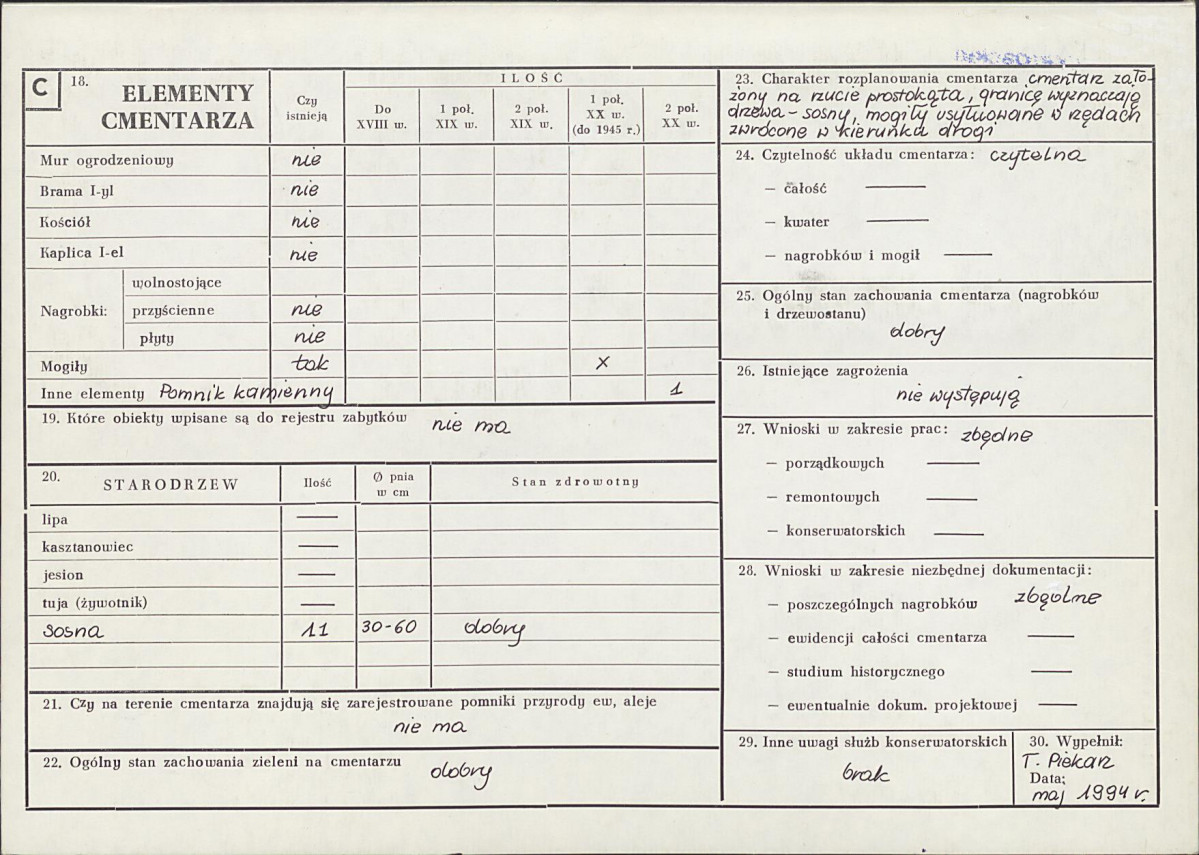 C
18.
ELEMENTY
CMENTARZA
Czy
istnieją
ILOŚĆ
Do
XVIII w.
1 poł.
XIX w.
2 poł.
XIX w.
1 poł.
XX w.
(do 1945 r.)
2 poł.
XX w.
Mur ogrodzeniowy nie
Brama I-yl nie
Kościół nie
Kaplica I-el nie
Nagrobki:
wolnostojące
przyścienne nie
płyty nie
Mogiły tak x
Inne elementy Pomnik kamienny 1
19. Które obiekty wpisane są do rejestru zabytków nie ma
20.
STARODRZEW
Ilość
Ø pnia
w cm
Stan zdrowotny
lipa —
kasztanowiec —
jesion —
tuja (żywotnik) —
sosna 11 30-60 dobry
21. Czy na terenie cmentarza znajdują się zarejestrowane pomniki przyrody ew, aleje
nie ma
22. Ogólny stan zachowania zieleni na cmentarzu dobry
23. Charakter rozplanowania cmentarza cmentarz zało-
żony na rzucie prostokąta, granicę wyznaczają
drzewa - sosny, mogiły usytuowane w rzędach
zwrócone w kierunku drogi
24. Czytelność układu cmentarza: czytelna
— całość —
— kwater —
— nagrobków i mogił —
25. Ogólny stan zachowania cmentarza (nagrobków
i drzewostanu)
dobry
26. Istniejące zagrożenia
nie występują
27. Wnioski w zakresie prac: zbędne
— porządkowych —
— remontowych —
— konserwatorskich —
28. Wnioski w zakresie niezbędnej dokumentacji:
— poszczególnych nagrobków zbędne
— ewidencji całości cmentarza —
— studium historycznego —
— ewentualnie dokum. projektowej —
29. Inne uwagi służb konserwatorskich
brak
30. Wypełnił:
T. Piekarz
Data:
maj 1994 r.